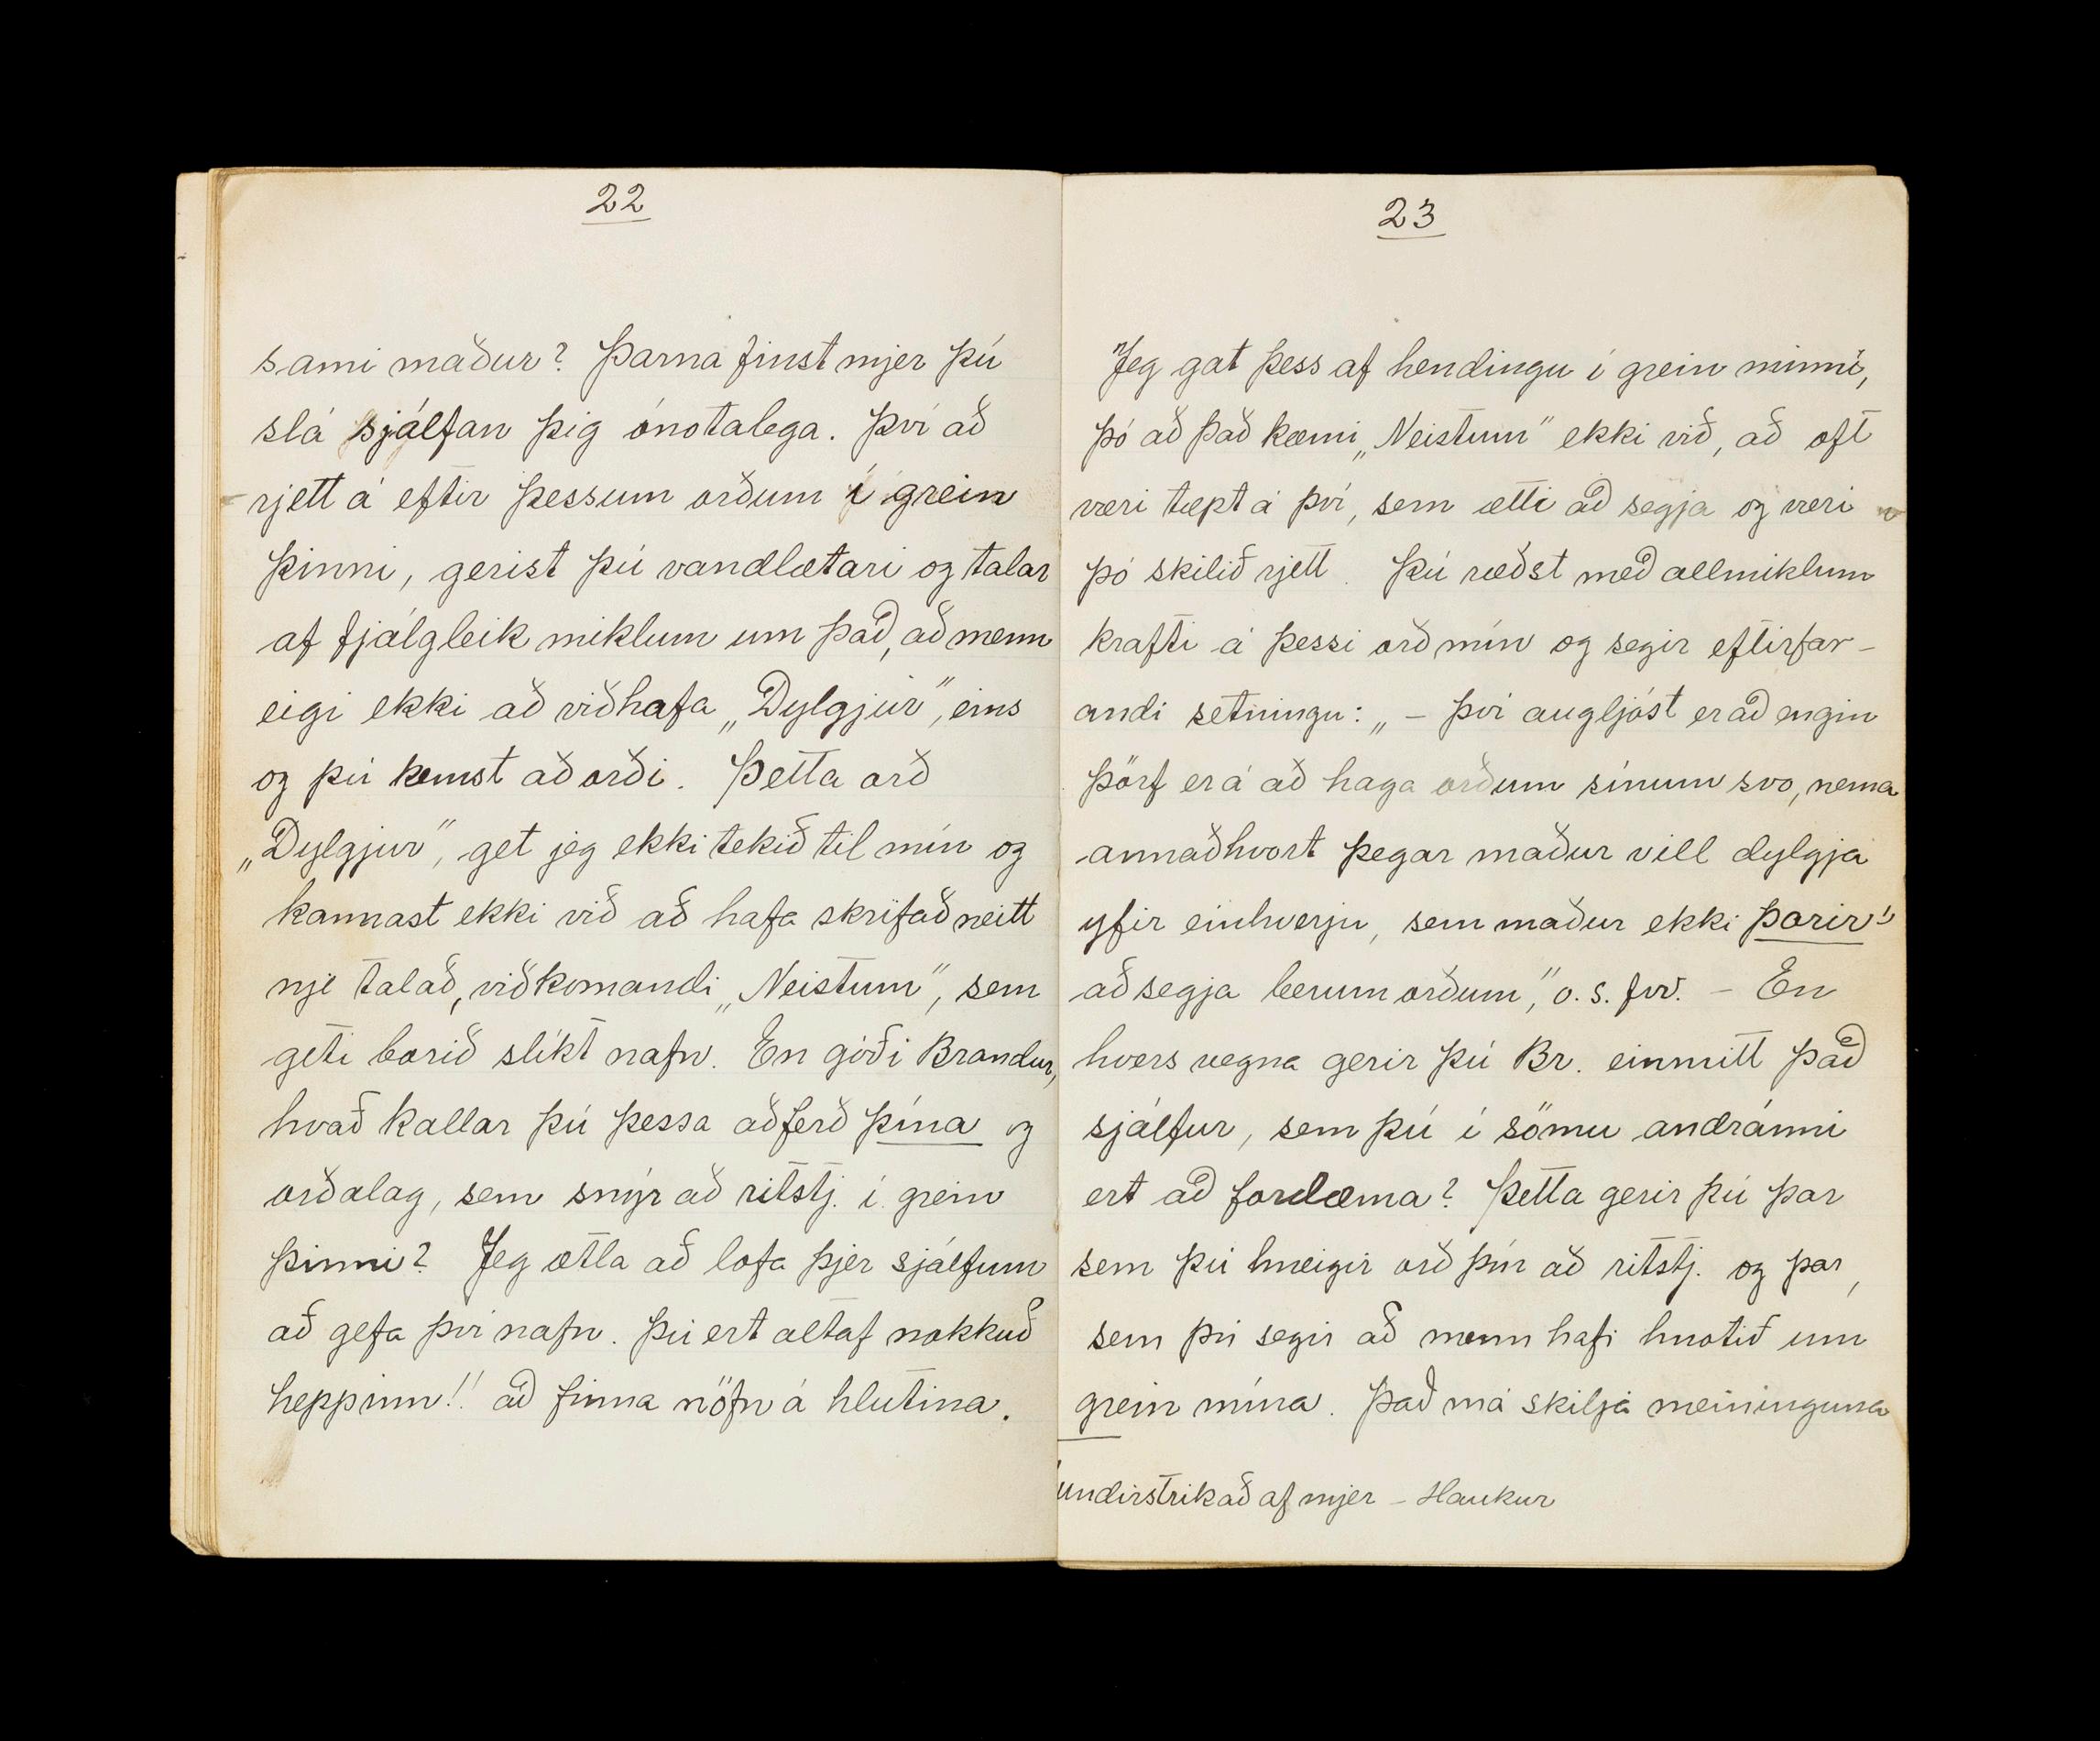 22
sami maður? Þarna finst mjer þú
slá sjálfan þig ónotalega. Því að
rjett á eftir þessum orðum í grein
þinni, gerist þú vandlætari og talar
af fjálgleik miklum um það, að menn
eigi ekki að viðhafa „Dylgjur", eins
og þú kemst að orði. Þetta orð
„Dylgjur", get jeg ekki tekið til mín og
kannast ekki við að hafa skrifað neitt
nje talað, viðkomandi „Neistum", sem
geti borið slíkt nafn. En góði Brandur,
hvað kallar þú þessa aðferð þína og
orðalag, sem snýr að ritstj. í grein
þinni? Jeg ætla að lofa þjer sjálfum
að gefa því nafn. Þú ert altaf nokkuð
heppinn!! að finna nöfn á hlutina.
23
Jeg gat þess af hendingu í grein minni,
þó að það kæmi „Neistum" ekki við, að oft
væri tæpt á því, sem ætti að segja og væri
þó skilið rjett. Þú ræðst með allmiklum
krafti á þessi orð mín og segir eftirfar-
andi setningu: „ – því augljóst er að engin
þörf er á að haga orðum sínum svo, nema
annaðhvort þegar maður vill dylgja
yfir einhverju, sem maður ekki þorir¹⁾
að segja berum orðum", o. s. frv. – En
hvers vegna gerir þú Br. einmitt það
sjálfur, sem þú í sömu andránni
ert að fordæma? Þetta gerir þú þar
sem þú hneigir orð þín að ritstj. og þar,
sem þú segir að menn hafi hnotið um
grein mína. Það má skilja meininguna
undirstrikað af mjer – Haukur